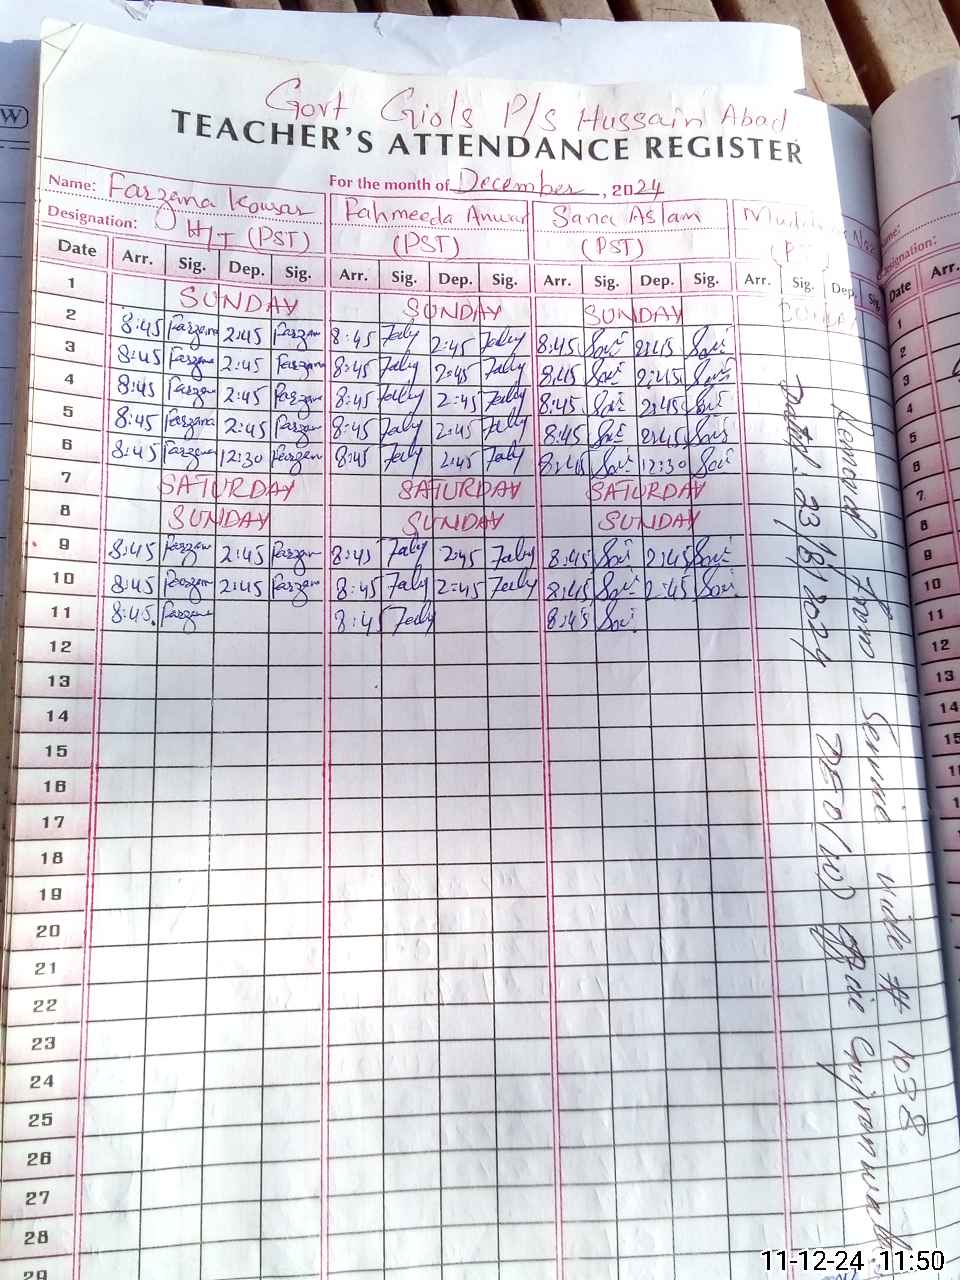 W
Govt Giols P/s Hussain Abad
TEACHER'S ATTENDANCE REGISTER
For the month of December, 2024
Name: Farzana Kousar Fahmeeda Anwar Sana Aslam
Designation: H/T (PST) (PST) (PST)
Date Arr. Sig. Dep. Sig. Arr. Sig. Dep. Sig. Arr. Sig. Dep. Sig. Arr. Sig. Dep. Sig.
1 SUNDAY SUNDAY SUNDAY SUNDAY
2 8:45 Farzana 2:45 Farzan 8:45 2:45 8:45 2:45
3 8:45 Farzana 2:45 Farzan 8:45 2:45 8:45 2:45
4 8:45 Farzana 2:45 Farzan 8:45 2:45 8:45 2:45
5 8:45 Farzana 2:45 Farzan 8:45 2:45 8:45 2:45
6 8:45 Farzan 12:30 Farzan 8:45 2:45 8:45 12:30
7 SATURDAY SATURDAY SATURDAY
8 SUNDAY SUNDAY SUNDAY
9 8:45 Farzan 2:45 Farzan 8:45 2:45 8:45 2:45
10 8:45 Farzan 2:45 Farzan 8:45 2:45 8:45 2:45
11 8:45 Farzan 8:45 8:45
12
13
14
15
16
17
18
19
20
21
22
23
24
25
26
27
28
29
Removed from Service vide # 1038
Dated. 23/8/2024 DEO(W) Office Gujranwala
Designation:
Date Arr.
1
2
3
4
5
6
7
8
9
10
11
12
13
14
15
11-12-24 11:50